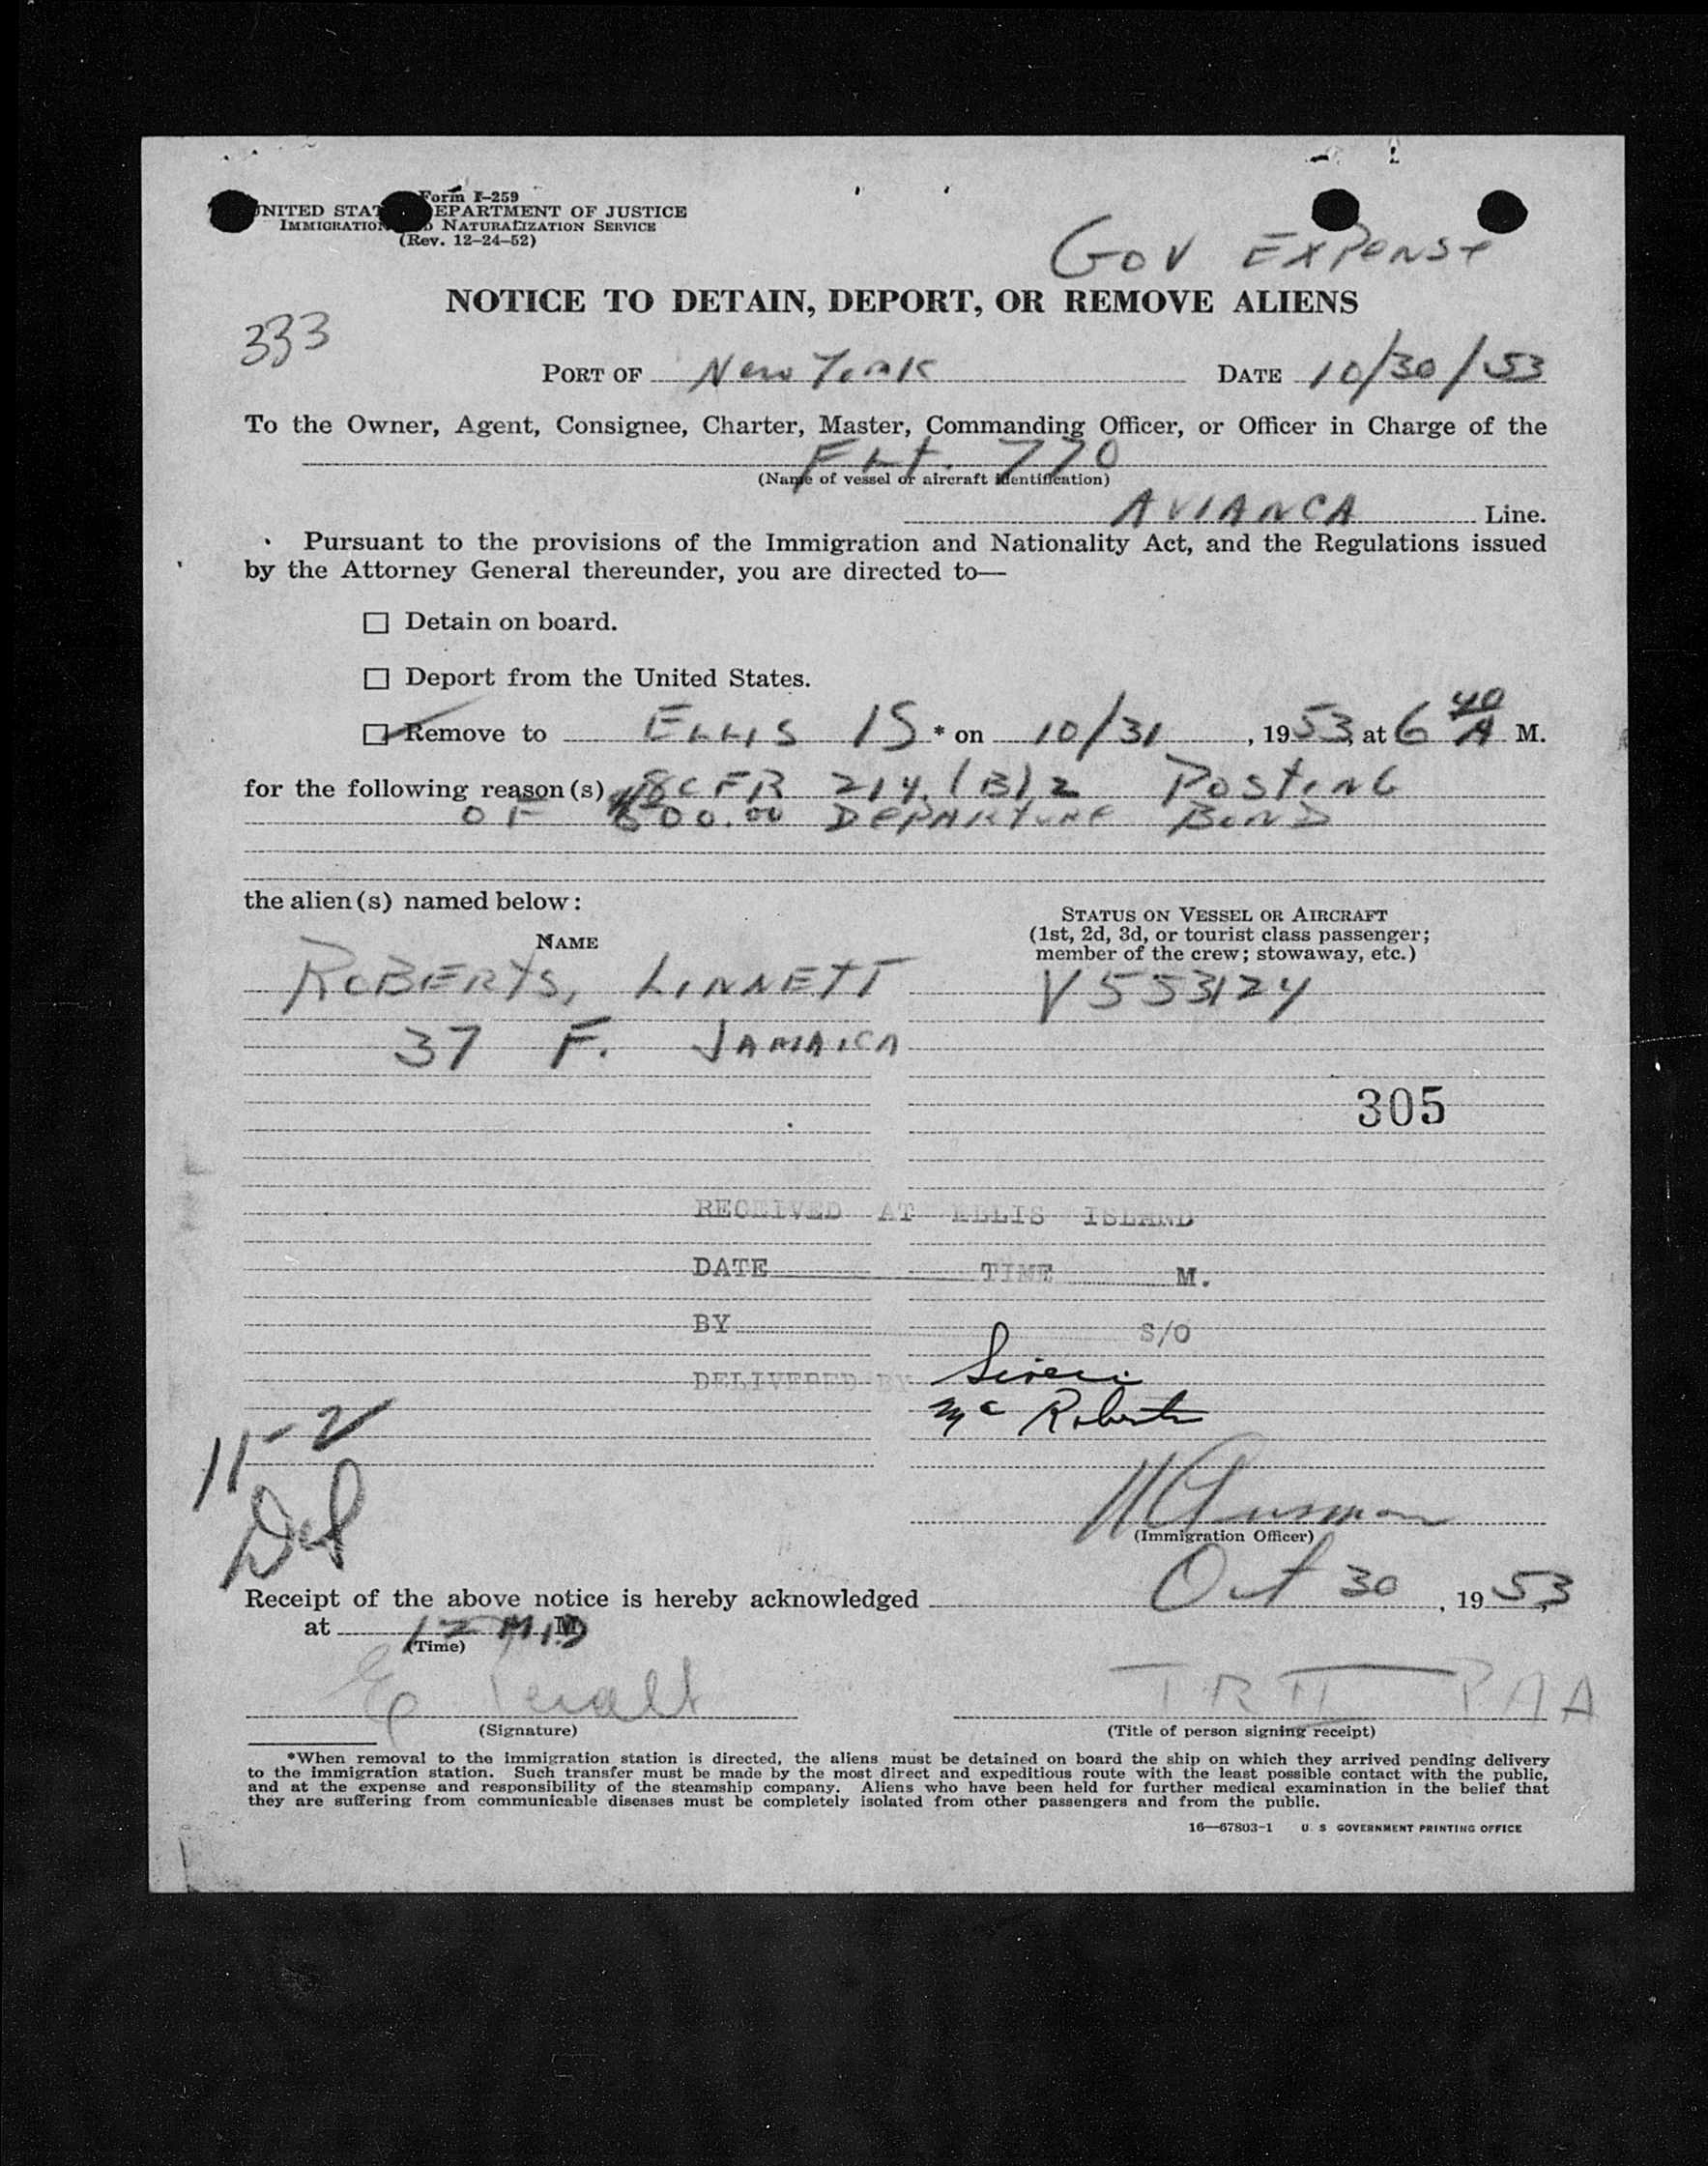 Form I-259
UNITED STATES DEPARTMENT OF JUSTICE
IMMIGRATION AND NATURALIZATION SERVICE
(Rev. 12-24-52)
GOV EXPENSE
NOTICE TO DETAIN, DEPORT, OR REMOVE ALIENS
333
PORT OF New York DATE 10/30/53
To the Owner, Agent, Consignee, Charter, Master, Commanding Officer, or Officer in Charge of the
FLt. 770
(Name of vessel or aircraft identification)
AVIANCA Line.
Pursuant to the provisions of the Immigration and Nationality Act, and the Regulations issued
by the Attorney General thereunder, you are directed to—
☐ Detain on board.
☐ Deport from the United States.
☐ Remove to ELLIS IS * on 10/31, 1953, at 6 40 A M.
for the following reason(s) 8 CFR 214.(B)2 POSTING
OF 500.00 DEPARTURE BOND
the alien(s) named below:
STATUS ON VESSEL OR AIRCRAFT
(1st, 2d, 3d, or tourist class passenger;
member of the crew; stowaway, etc.)
NAME
ROBERTS, LINNETT V553124
37 F. JAMAICA
305
RECEIVED AT ELLIS ISLAND
DATE TIME M.
BY S/O
DELIVERED BY
Mc Roberts
11-2
Def
(Immigration Officer)
Receipt of the above notice is hereby acknowledged Oct 30, 1953,
at 12 MID M
(Time)
E
TR II PAA
(Signature) (Title of person signing receipt)
*When removal to the immigration station is directed, the aliens must be detained on board the ship on which they arrived pending delivery
to the immigration station. Such transfer must be made by the most direct and expeditious route with the least possible contact with the public,
and at the expense and responsibility of the steamship company. Aliens who have been held for further medical examination in the belief that
they are suffering from communicable diseases must be completely isolated from other passengers and from the public.
16—67803-1 U. S GOVERNMENT PRINTING OFFICE